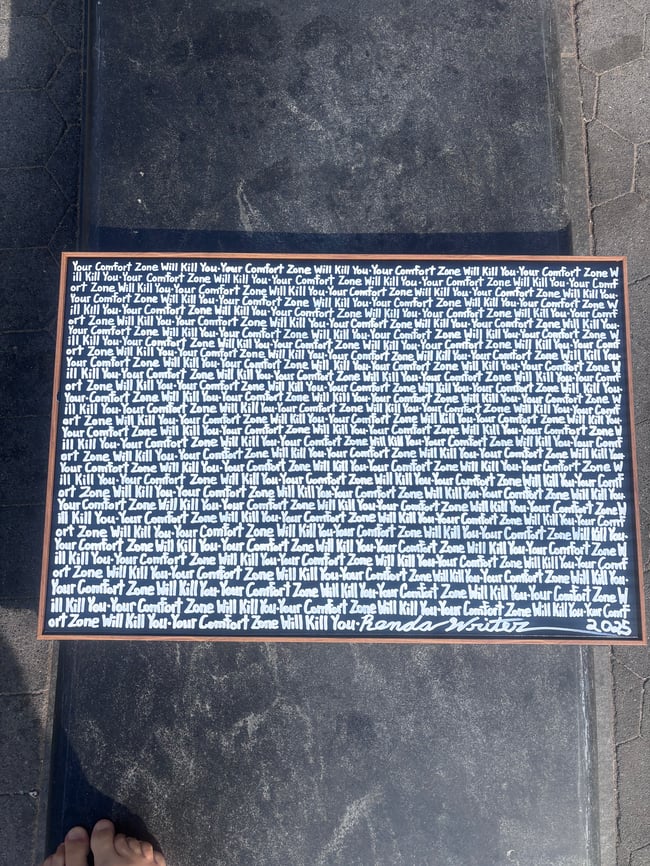 Your Comfort Zone Will Kill You·Your Comfort Zone Will Kill You·Your Comfort Zone Will Kill You·Your Comfort Zone W
ill Kill You·Your Comfort Zone Will Kill You·Your Comfort Zone Will Kill You·Your Comfort Zone Will Kill You·Your Comf
ort Zone Will Kill You·Your Comfort Zone Will Kill You·Your Comfort Zone Will Kill You·Your Comfort Zone Will Kill You·
Your Comfort Zone Will Kill You·Your Comfort Zone Will Kill You·Your Comfort Zone Will Kill You·Your Comfort Zone W
ill Kill You·Your Comfort Zone Will Kill You·Your Comfort Zone Will Kill You·Your Comfort Zone Will Kill You·Your Comf
ort Zone Will Kill You·Your Comfort Zone Will Kill You·Your Comfort Zone Will Kill You·Your Comfort Zone Will Kill You·
Your Comfort Zone Will Kill You·Your Comfort Zone Will Kill You·Your Comfort Zone Will Kill You·Your Comfort Zone W
ill Kill You·Your Comfort Zone Will Kill You·Your Comfort Zone Will Kill You·Your Comfort Zone Will Kill You·Your Comf
ort Zone Will Kill You·Your Comfort Zone Will Kill You·Your Comfort Zone Will Kill You·Your Comfort Zone Will Kill You·
Your Comfort Zone Will Kill You·Your Comfort Zone Will Kill You·Your Comfort Zone Will Kill You·Your Comfort Zone W
ill Kill You·Your Comfort Zone Will Kill You·Your Comfort Zone Will Kill You·Your Comfort Zone Will Kill You·Your Comf
ort Zone Will Kill You·Your Comfort Zone Will Kill You·Your Comfort Zone Will Kill You·Your Comfort Zone Will Kill You·
Your Comfort Zone Will Kill You·Your Comfort Zone Will Kill You·Your Comfort Zone Will Kill You·Your Comfort Zone W
ill Kill You·Your Comfort Zone Will Kill You·Your Comfort Zone Will Kill You·Your Comfort Zone Will Kill You·Your Comf
ort Zone Will Kill You·Your Comfort Zone Will Kill You·Your Comfort Zone Will Kill You·Your Comfort Zone Will Kill You·
Your Comfort Zone Will Kill You·Your Comfort Zone Will Kill You·Your Comfort Zone Will Kill You·Your Comfort Zone W
ill Kill You·Your Comfort Zone Will Kill You·Your Comfort Zone Will Kill You·Your Comfort Zone Will Kill You·Your Comf
ort Zone Will Kill You·Your Comfort Zone Will Kill You·Your Comfort Zone Will Kill You·Your Comfort Zone Will Kill You·
Your Comfort Zone Will Kill You·Your Comfort Zone Will Kill You·Your Comfort Zone Will Kill You·Your Comfort Zone W
ill Kill You·Your Comfort Zone Will Kill You·Your Comfort Zone Will Kill You·Your Comfort Zone Will Kill You·Your Comf
ort Zone Will Kill You·Your Comfort Zone Will Kill You·Your Comfort Zone Will Kill You·Your Comfort Zone Will Kill You·
Your Comfort Zone Will Kill You·Your Comfort Zone Will Kill You·Your Comfort Zone Will Kill You·Your Comfort Zone W
ill Kill You·Your Comfort Zone Will Kill You·Your Comfort Zone Will Kill You·Your Comfort Zone Will Kill You·Your Comf
ort Zone Will Kill You·Your Comfort Zone Will Kill You·Your Comfort Zone Will Kill You·Your Comfort Zone Will Kill You·
Your Comfort Zone Will Kill You·Your Comfort Zone Will Kill You·Your Comfort Zone Will Kill You·Your Comfort Zone W
ill Kill You·Your Comfort Zone Will Kill You·Your Comfort Zone Will Kill You·Your Comfort Zone Will Kill You·Your Comf
ort Zone Will Kill You·Your Comfort Zone Will Kill You·Your Comfort Zone Will Kill You·Your Comfort Zone Will Kill You·
Your Comfort Zone Will Kill You·Your Comfort Zone Will Kill You·Your Comfort Zone Will Kill You·Your Comfort Zone W
ill Kill You·Your Comfort Zone Will Kill You·Your Comfort Zone Will Kill You·Your Comfort Zone Will Kill You·Your Comf
ort Zone Will Kill You·Your Comfort Zone Will Kill You· Renda Writer 2025